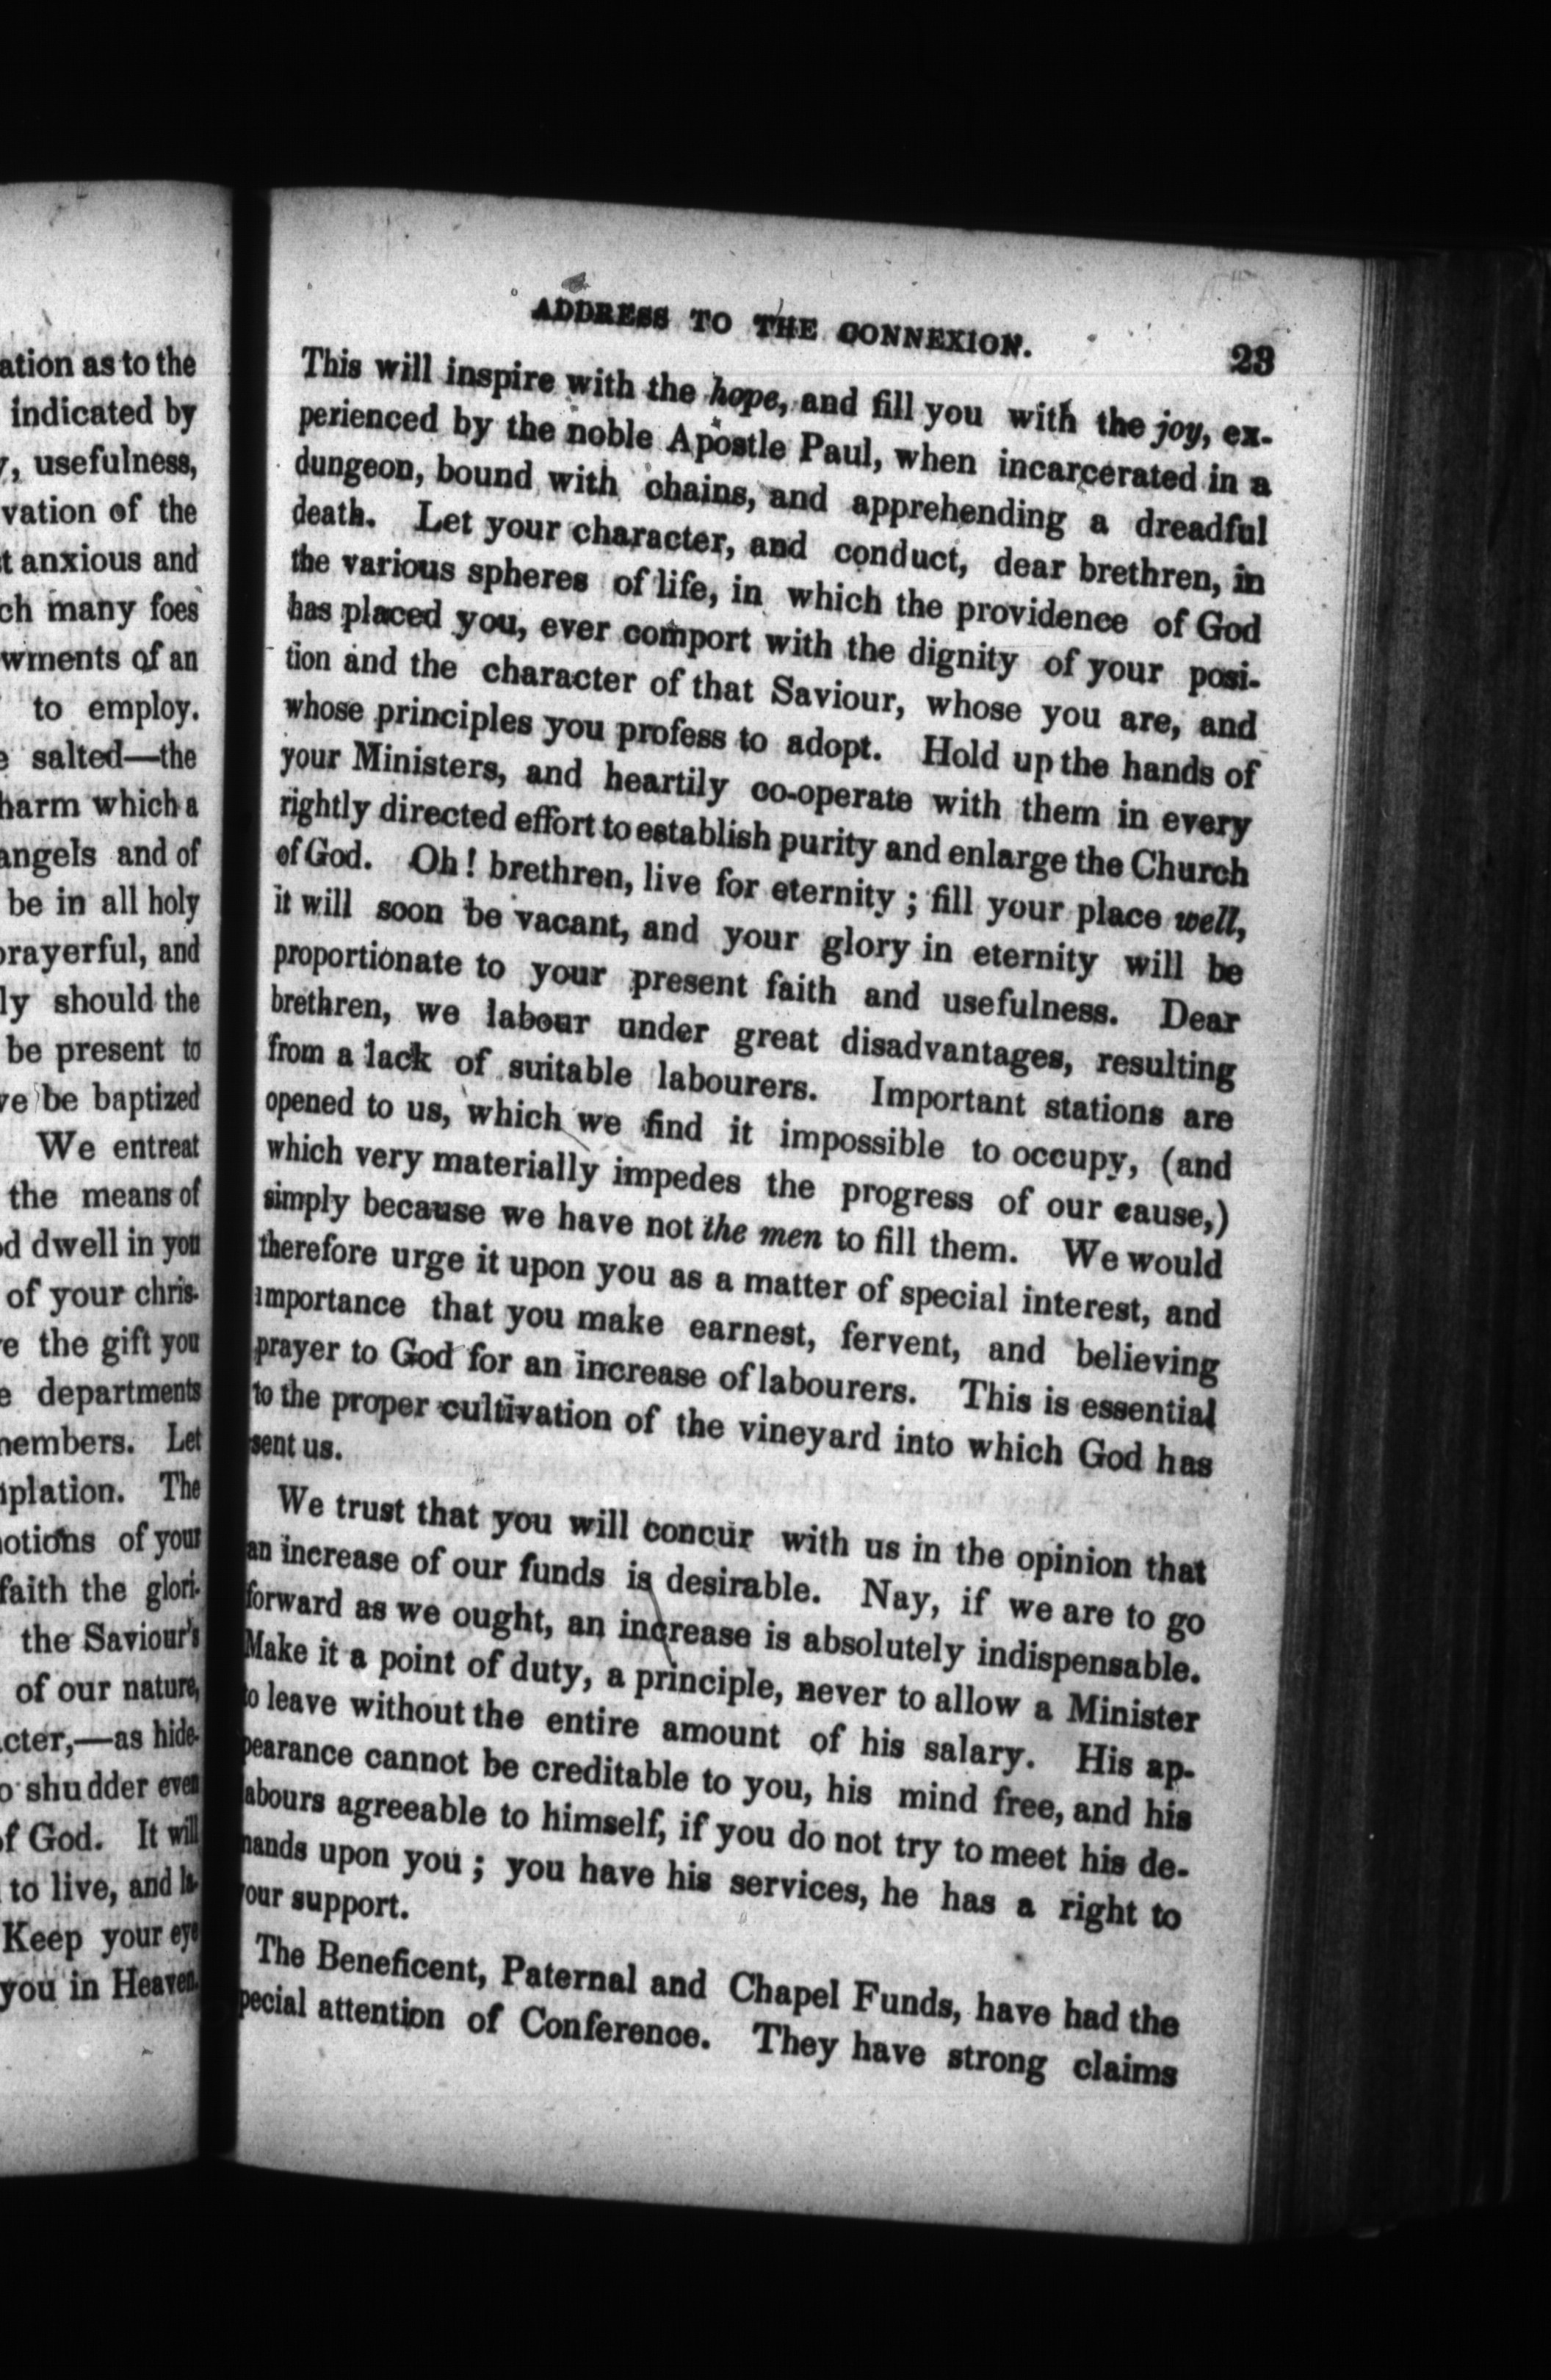 ation as to the
indicated by
, usefulness,
vation of the
t anxious and
ch many foes
wments of an
to employ.
e salted—the
harm which a
angels and of
be in all holy
prayerful, and
ly should the
be present to
ve be baptized
We entreat
the means of
d dwell in you
of your chris-
e the gift you
e departments
members. Let
plation. The
otions of your
faith the glori-
the Saviour's
of our nature,
cter,—as hide-
o shudder even
of God. It will
to live, and la-
Keep your eye
you in Heaven.
ADDRESS TO THE CONNEXION. 23
This will inspire with the hope, and fill you with the joy, ex-
perienced by the noble Apostle Paul, when incarcerated in a
dungeon, bound with chains, and apprehending a dreadful
death. Let your character, and conduct, dear brethren, in
the various spheres of life, in which the providence of God
has placed you, ever comport with the dignity of your posi-
tion and the character of that Saviour, whose you are, and
whose principles you profess to adopt. Hold up the hands of
your Ministers, and heartily co-operate with them in every
rightly directed effort to establish purity and enlarge the Church
of God. Oh! brethren, live for eternity; fill your place well,
it will soon be vacant, and your glory in eternity will be
proportionate to your present faith and usefulness. Dear
brethren, we labour under great disadvantages, resulting
from a lack of suitable labourers. Important stations are
opened to us, which we find it impossible to occupy, (and
which very materially impedes the progress of our cause,)
simply because we have not the men to fill them. We would
therefore urge it upon you as a matter of special interest, and
importance that you make earnest, fervent, and believing
prayer to God for an increase of labourers. This is essential
to the proper cultivation of the vineyard into which God has
sent us.
We trust that you will concur with us in the opinion that
an increase of our funds is desirable. Nay, if we are to go
forward as we ought, an increase is absolutely indispensable.
Make it a point of duty, a principle, never to allow a Minister
to leave without the entire amount of his salary. His ap-
pearance cannot be creditable to you, his mind free, and his
labours agreeable to himself, if you do not try to meet his de-
mands upon you; you have his services, he has a right to
your support.
The Beneficent, Paternal and Chapel Funds, have had the
pecial attention of Conference. They have strong claims